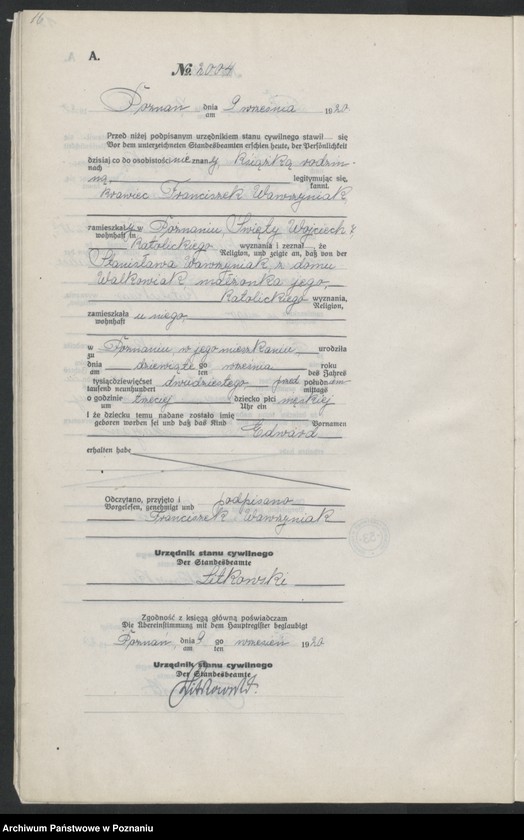 16
A.
No. 2004
Poznań dnia 9 września 1920
am
Przed niżej podpisanym urzędnikiem stanu cywilnego stawił się
Vor dem unterzeichneten Standesbeamten erschien heute, der Persönlichkeit
dzisiaj co do osobistości nie znany, książką rodzin-
nach
ną, legitymując się,
kannt,
krawiec Franciszek Wawrzyniak,
zamieszkały w Poznaniu, Święty Wojciech
wohnhaft in
Katolickiego wyznania i zeznał że
Religion, und zeigte an, daß von der
Stanisława Wawrzyniak z domu
Walkowiak małżonka jego,
Katolickiego wyznania,
Religion,
zamieszkała u niego,
wohnhaft
w Poznaniu, w jego mieszkaniu urodziła
zu
dnia dziewiątego września roku
am ten des Jahres
tysiącdziewięćset dwudziestego przed południem
tausend neunhundert mittags
o godzinie trzeciej dziecko płci męskiej
um Uhr ein
i że dziecku temu nadane zostało imię
geboren worden sei und daß das Kind Vornamen
Edward
erhalten habe
Odczytano, przyjęto i podpisano
Vorgelesen, genehmigt und
Franciszek Wawrzyniak
Urzędnik stanu cywilnego
Der Standesbeamte
Litkowski
Zgodność z księgą główną poświadczam
Die Übereinstimmung mit dem Hauptregister beglaubigt
Poznań, dnia 9 go wrzesień 1920
am ten
Urzędnik stanu cywilnego
Der Standesbeamte
Litkowski
Archiwum Państwowe w Poznaniu